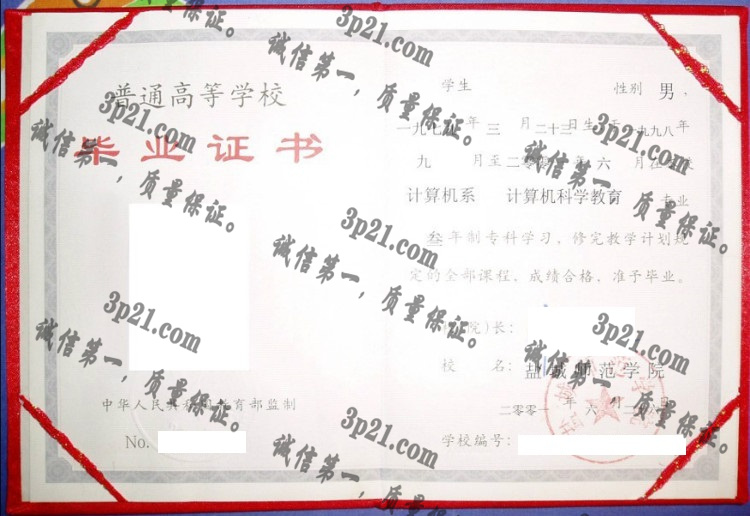 普通高等学校
毕业证书
中华人民共和国教育部监制
No.
学生 性别 男，
一九七 年 三 月 二十二 日生 一九九八年
九 月至二零零 年 六 月在
计算机系 计算机科学教育 专业
叁年制专科学习，修完教学计划规
定的全部课程、成绩合格，准予毕业。
院)长：
校 名：盐城师范学院
二零零一 年 六 月 二 日
学校编号：
3p21.com
诚信第一，质量保证。
3p21.com
诚信第一，质量保证。
3p21.com
诚信第一，质量保证。
3p21.com
诚信第一，质量保证。
3p21.com
诚信第一，质量保证。
3p21.com
诚信第一，质量保证。
3p21.com
诚信第一，质量保证。